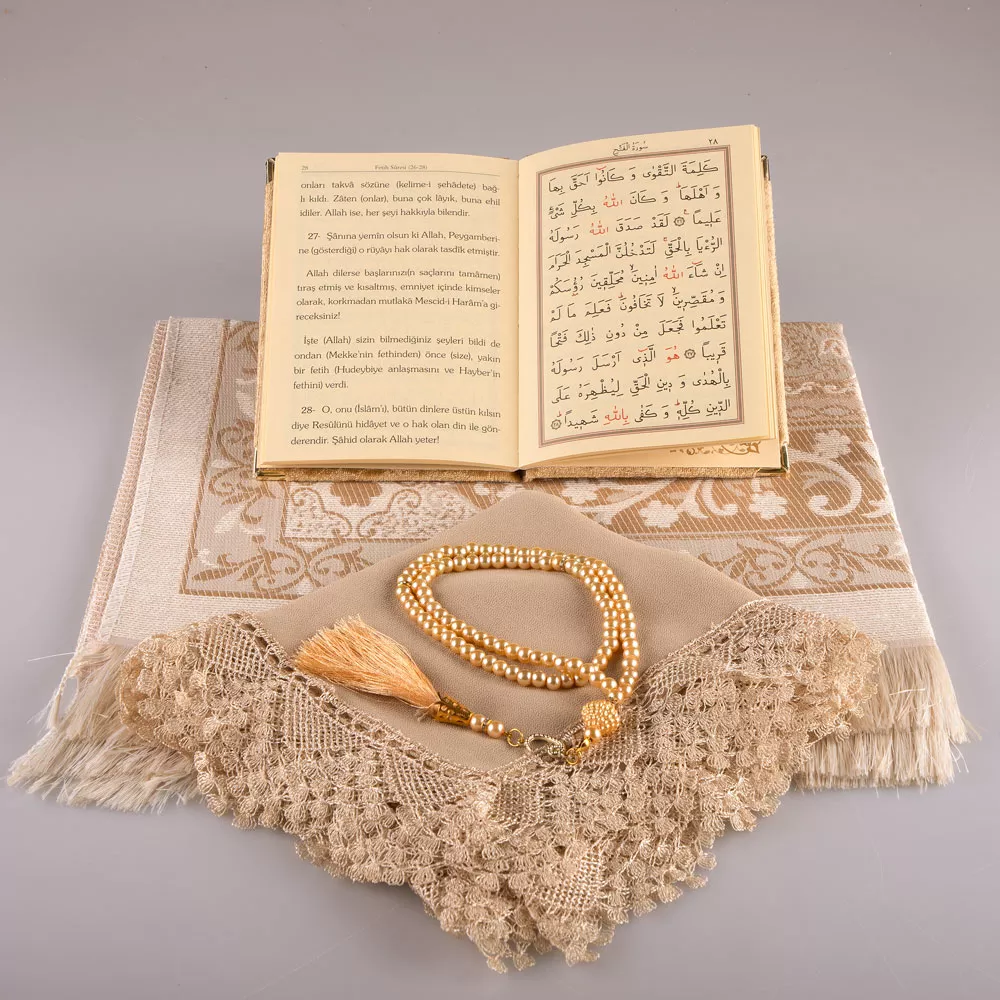 28
Fetih Sûresi (26-28)
onları takvâ sözüne (kelime-i şehâdete) bağ-
lı kıldı. Zâten (onlar), buna çok lâyık, buna ehil
idiler. Allah ise, her şeyi hakkıyla bilendir.
27- Şânına yemîn olsun ki Allah, Peygamberi-
ne (gösterdiği) o rüyâyı hak olarak tasdîk etmiştir.
Allah dilerse başlarınızı(n saçlarını tamâmen)
tıraş etmiş ve kısaltmış, emniyet içinde kimseler
olarak, korkmadan mutlakâ Mescid-i Harâm'a gi-
receksiniz!
İşte (Allah) sizin bilmediğiniz şeyleri bildi de
ondan (Mekke'nin fethinden) önce (size), yakın
bir fetih (Hudeybiye anlaşmasını ve Hayber'in
fethini) verdi.
28- O, onu (İslâm'ı), bütün dinlere üstün kılsın
diye Resûlünü hidâyet ve o hak olan din ile gön-
derendir. Şâhid olarak Allah yeter!
سُورَةُ الْفَتْحِ
٢٨
كَلِمَةَ التَّقْوٰى وَ كَانُٓوا اَحَقَّ بِهَا
وَ اَهْلَهَاۜ وَ كَانَ اللّٰهُ بِكُلِّ شَيْءٍ
عَلٖيمًا ۟ لَقَدْ صَدَقَ اللّٰهُ رَسُولَهُ
الرُّءْيَا بِالْحَقِّۚ لَتَدْخُلُنَّ الْمَسْجِدَ الْحَرَامَ
اِنْ شَٓاءَ اللّٰهُ اٰمِنٖينَۙ مُحَلِّقٖينَ رُؤُ۫سَكُمْ
وَ مُقَصِّرٖينَۙ لَا تَخَافُونَۜ فَعَلِمَ مَا لَمْ
تَعْلَمُوا فَجَعَلَ مِنْ دُونِ ذٰلِكَ فَتْحًا
قَرٖيبًا ۟ هُوَ الَّذٖٓي اَرْسَلَ رَسُولَهُ
بِالْهُدٰى وَ دٖينِ الْحَقِّ لِيُظْهِرَهُ عَلَى
الدّٖينِ كُلِّهٖۜ وَ كَفٰى بِاللّٰهِ شَهٖيدًاۜ